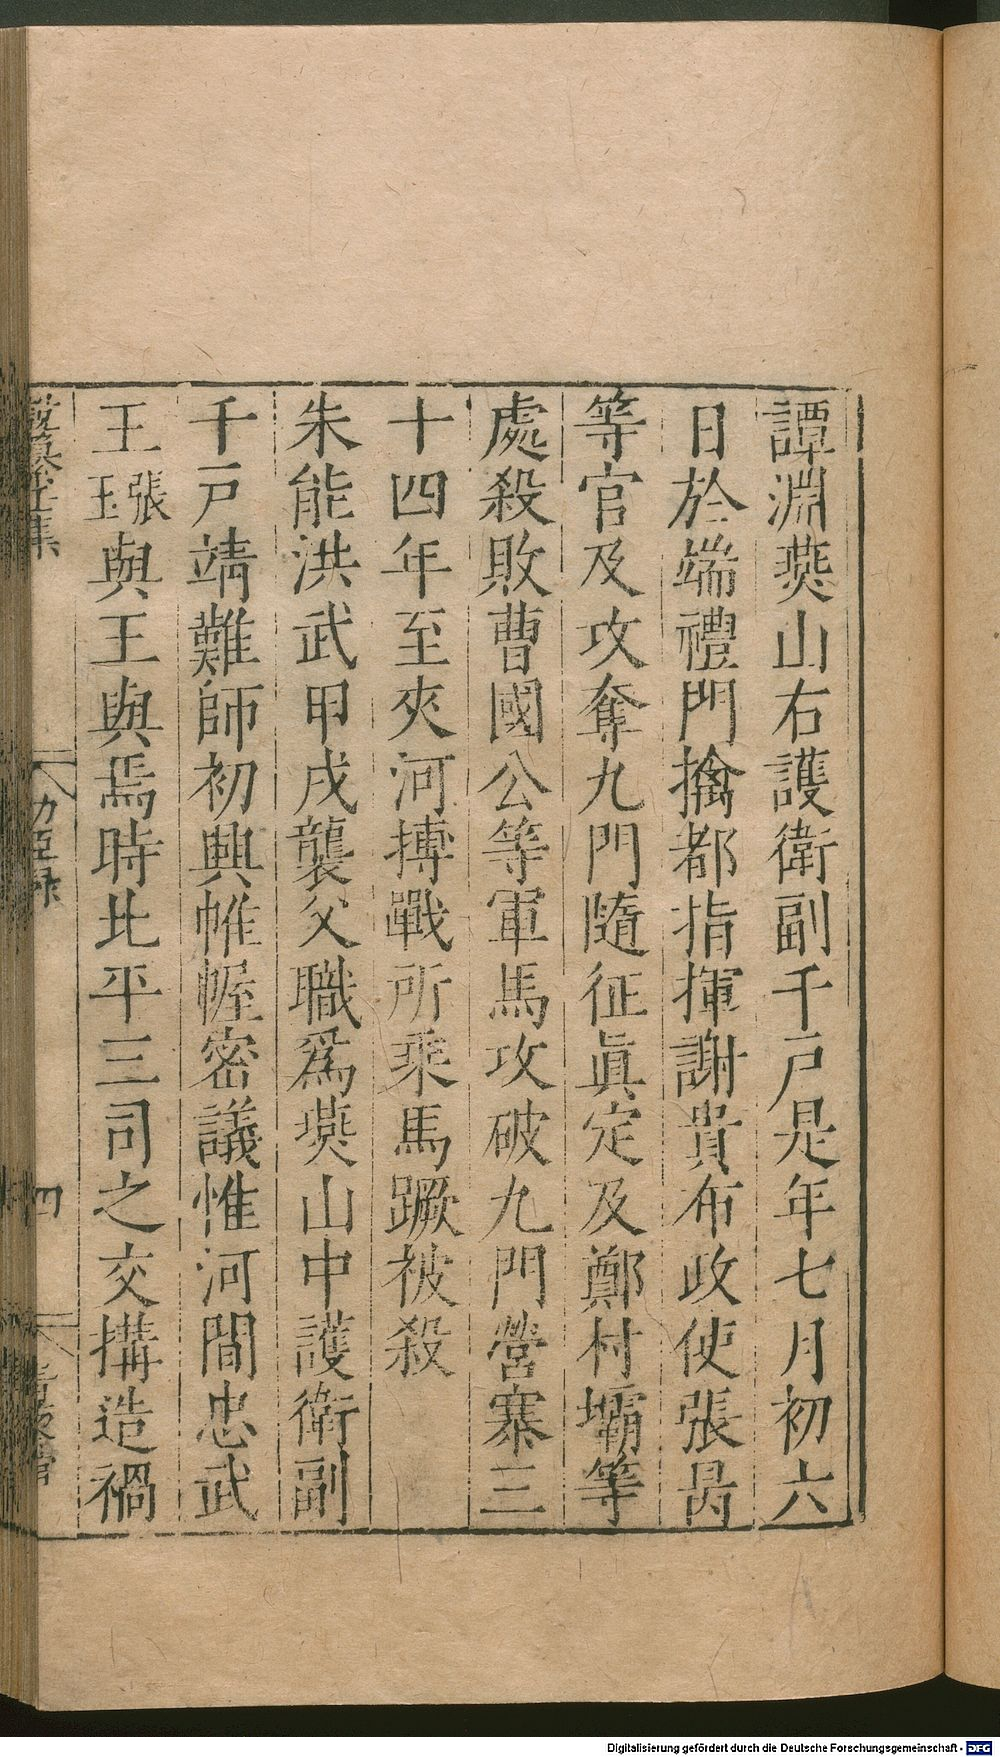 譚淵燕山右護衛副千戸是年七月初六
日於端禮門擒都指揮謝貴布政使張昺
等官及攻奪九門隨征眞定及鄭村壩等
處殺敗曹國公等軍馬攻破九門營寨三
十四年至夾河搏戰所乘馬蹶被殺
朱能洪武甲戌襲父職爲燕山中護衛副
千戸靖難師初興帷幄密議惟河間忠武
王張玉與王與焉時北平三司之交搆造禍
四
Digitalisierung gefördert durch die Deutsche Forschungsgemeinschaft - DFG